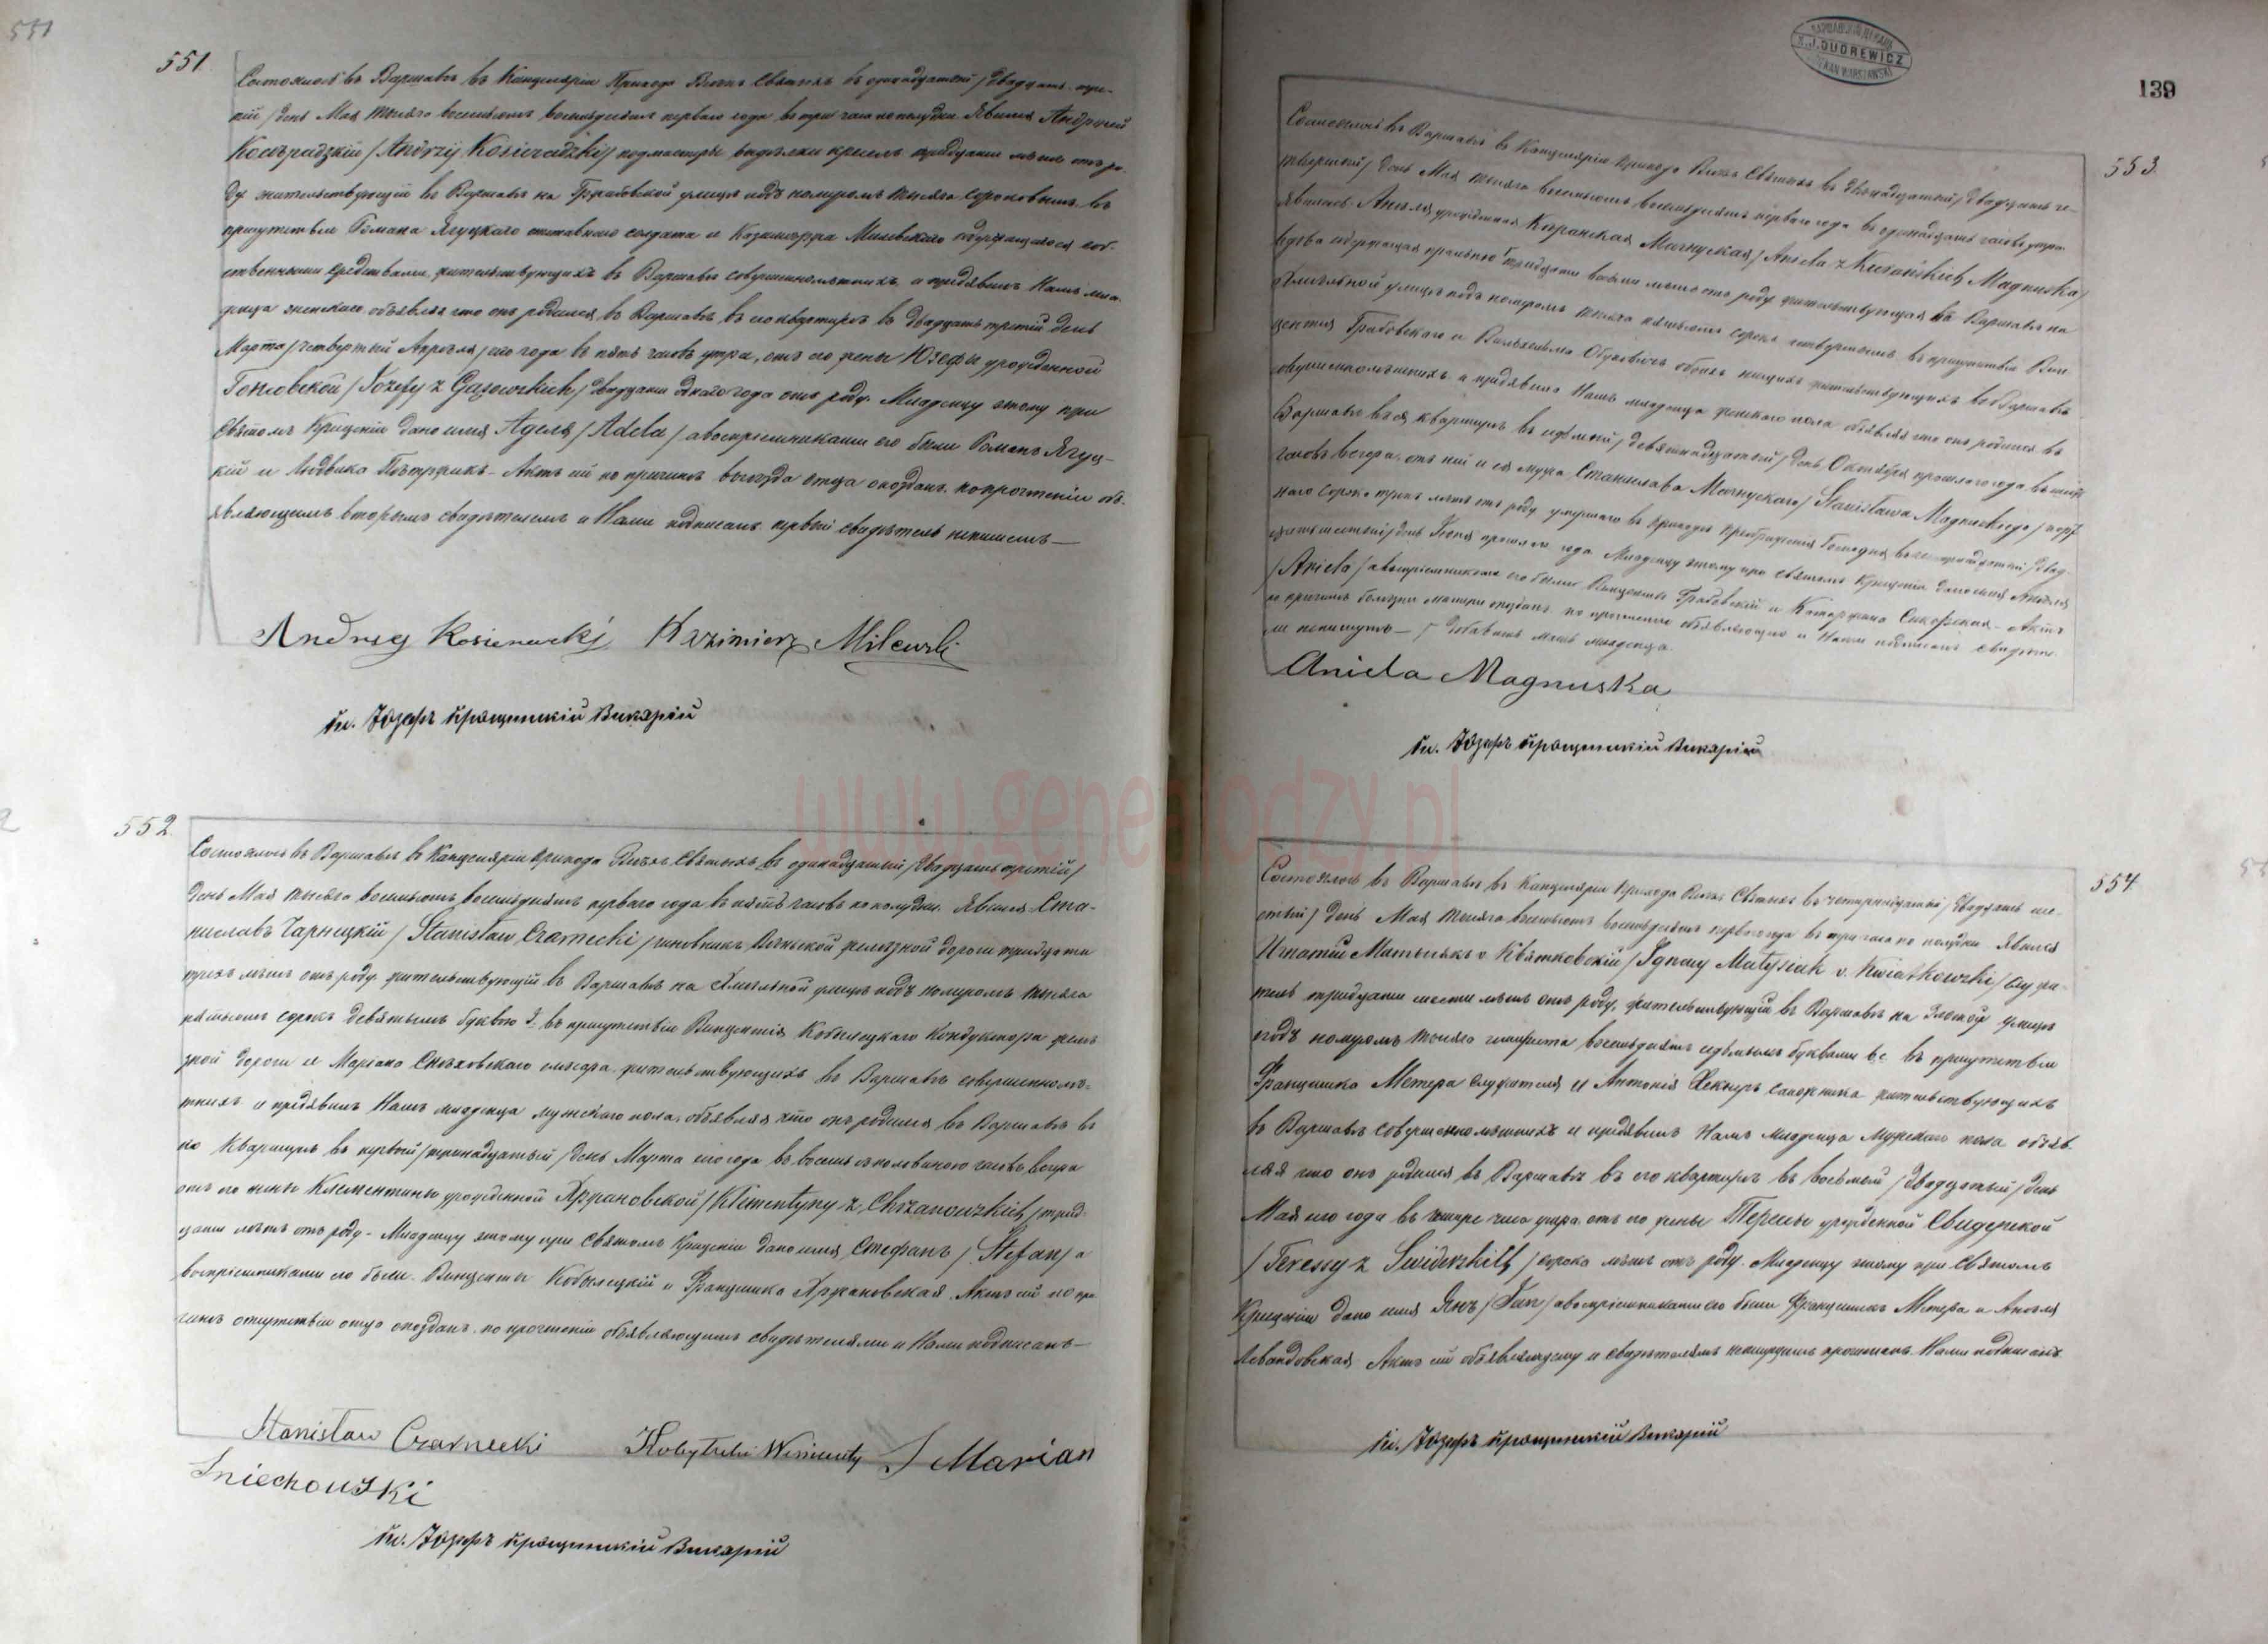 551
551.
Состоялось въ Варшавѣ въ Канцеляріи Прихода Всѣхъ Святыхъ въ одинадцатый /двадцать тре-
тій/ день Мая тысяча восемьсотъ восемьдесятъ перваго года въ три часа по полудни. Явился Андржей
Косѣрадзкій /Andrzéj Kosieradzki/ подмастерье выдѣлки креселъ тридцати лѣтъ отъ ро-
ду жительствующій въ Варшавѣ на Гржибовской улицѣ подъ номеромъ тысяча сороковымъ, въ
присутствіи Романа Ягуцкаго отставнаго солдата и Казимѣрра Милевскаго содержащагося соб-
ственными средствами, жительствующихъ въ Варшавѣ совершеннолѣтнихъ, и предъявилъ Намъ мла-
денца женскаго объявляя что онъ родился въ Варшавѣ въ его квартирѣ въ двадцать третій день
Марта /четвертый Апрѣля/ сего года въ пять часовъ утра, отъ его жены Юзефы урожденной
Гонсовской /Józefy z Gąsowskich/ двадцати года отъ роду. Младенцу этому при
Святомъ Крещеніи дано имя Адела /Adela/ а воспріемниками его были Романъ Ягуц-
кій и Людвика Актъ сей по причинѣ выѣзда отца опозданъ, по прочтеніи объ-
являющимъ вторымъ свидѣтелемъ и Нами подписанъ первый свидѣтель неписемъ—
Andrzey Kosieracki Kazimierz Milewski
Кс. Юзефъ Викарій
552.
Состоялось въ Варшавѣ въ Канцеляріи Прихода Всѣхъ Святыхъ въ одинадцатый /двадцать третій/
день Мая тысяча восемьсотъ восемьдесятъ перваго года въ пять часовъ по полудни. Явился Ста-
ниславъ Чарнецкій /Stanisław Czarnecki/ чиновникъ Вѣнской желѣзной дороги тридцати
трехъ лѣтъ отъ роду жительствующій въ Варшавѣ на Хмѣльной улицѣ подъ номеромъ тысяча
пятьсотъ сорокъ девятымъ буквою въ присутствіи Винцентія Кобылецкаго Кондуктора желѣ-
зной дороги и Маріана Снѣховскаго слесаря, жительствующихъ въ Варшавѣ совершеннолѣ-
тнихъ и предъявилъ Намъ младенца мужскаго пола, объявляя что онъ родился въ Варшавѣ въ
его квартирѣ въ первый /тринадцатый/ день Марта сего года въ восемь съ половиною часовъ вечера
отъ его жены Клементины урожденной Хржановской /Klementyny z Chrzanowskich/ трид-
цати лѣтъ отъ роду. Младенцу этому при Святомъ Крещеніи дано имя Стефанъ /Stefan/ а
воспріемниками его были Винцентъ Кобылецкій и Францишка Хржановская. Актъ сей по при-
чинѣ отсутствія отца опозданъ, по прочтеніи объявляющимъ свидѣтелями и Нами подписанъ—
Stanisław Czarnecki Wincenty S Marian
Sniechowski
Кс. Юзефъ Викарій
J. DUDREWICZ
DZIEKAN WARSZAWSKI
139
553.
Состоялось въ Варшавѣ въ Канцеляріи Прихода Всѣхъ Святыхъ въ двѣнадцатый /двадцать че-
твертый/ день Мая тысяча восемьсотъ восемьдесятъ перваго года въ одинадцать часовъ утра.
Явилась Анѣля урожденная Магнуская /Aniela z Magnuska/
вдова тридцати восьми лѣтъ отъ роду жительствующая въ Варшавѣ на
Хмѣльной улицѣ подъ номеромъ тысяча пятьсотъ сорокъ четвертымъ въ присутствіи Вин-
центія Грабовскаго и Вильгельма обоихъ жительствующихъ въ Варшавѣ
совершеннолѣтнихъ, и предъявила Намъ младенца женскаго пола объявляя что онъ родился въ
Варшавѣ въ ея квартирѣ въ седьмой /девятнадцатый/ день Октября прошлаго года въ
часовъ вечера, отъ ней и ея мужа Станислава Магнускаго /Stanisława Magnuskiego/
сорока трехъ лѣтъ отъ роду умершаго въ Приходѣ Преображенія Господня /двад-
цать шестой/ день Іюня прошлаго года. Младенцу этому при Святомъ Крещеніи дано имя Анѣля
/Aniela/ а воспріемниками его были Винцентъ Грабовскій и Катаржина Актъ
по причинѣ болѣзни матери опозданъ, по прочтеніи объявляющею и Нами подписанъ свидѣте-
ли непишутъ— младенца.
Aniela Magnuska
Кс. Юзефъ Викарій
www.genealodzy.pl
554
Состоялось въ Варшавѣ въ Канцеляріи Прихода Всѣхъ Святыхъ въ четырнадцатый /двадцать ше-
стый/ день Мая тысяча восемьсотъ восемьдесятъ перваго года въ три часа по полудни. Явился
Игнатій Матысякъ v. Квятковскій /Ignacy Matysiak v. Kwiatkowski/ служи-
тель тридцати шести лѣтъ отъ роду, жительствующій въ Варшавѣ на Злотой улицѣ
подъ номеромъ тысяча четыреста восемьдесятъ седьмымъ буквами въ присутствіи
Францишка Метера служителя и Антонія жительствующихъ
въ Варшавѣ совершеннолѣтнихъ и предъявилъ Намъ младенца мужскаго пола объяв-
ляя что онъ родился въ Варшавѣ въ его квартирѣ въ восьмый /двадцатый/ день
Мая сего года въ четыре часа утра, отъ его жены Терессы урожденной Свидерской
/Teressy z Swiderskich/ сорока лѣтъ отъ роду. Младенцу этому при Святомъ
Крещеніи дано имя Янъ /Jan/ а воспріемниками его были Францишекъ Метера и Анѣля
Левандовская. Актъ сей объявляющему и свидѣтелямъ неписущимъ прочитанъ, Нами подписанъ.
Кс. Юзефъ Викарій